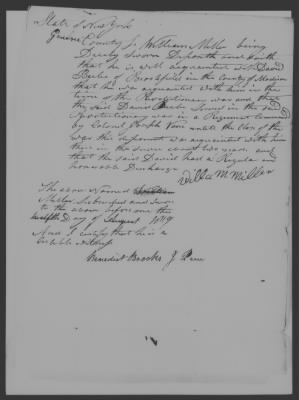 State of New York
Genesee County Ss William Miller being
Duely Sworn Deposeth and Saith
that he is well acquainted with David
Beebe of Brookfield in the County of Madison
that he was acquainted with him in the
time of the Revolutionary war and that
the said David Beebe Served in the said
Revolutionary war in a Regiment Commanded
by Colonel until the Close of the
war this deponent was acquainted with him
there in the Service about two years and
that the said David had a Regular and
Honourable Discharge
William Miller
The above Named William
Miller Subscribed and Sworn
to the above before me the
twelfth Day of August 1819
And I certify that he is a
credible witness
Benedict Brooks J Peace